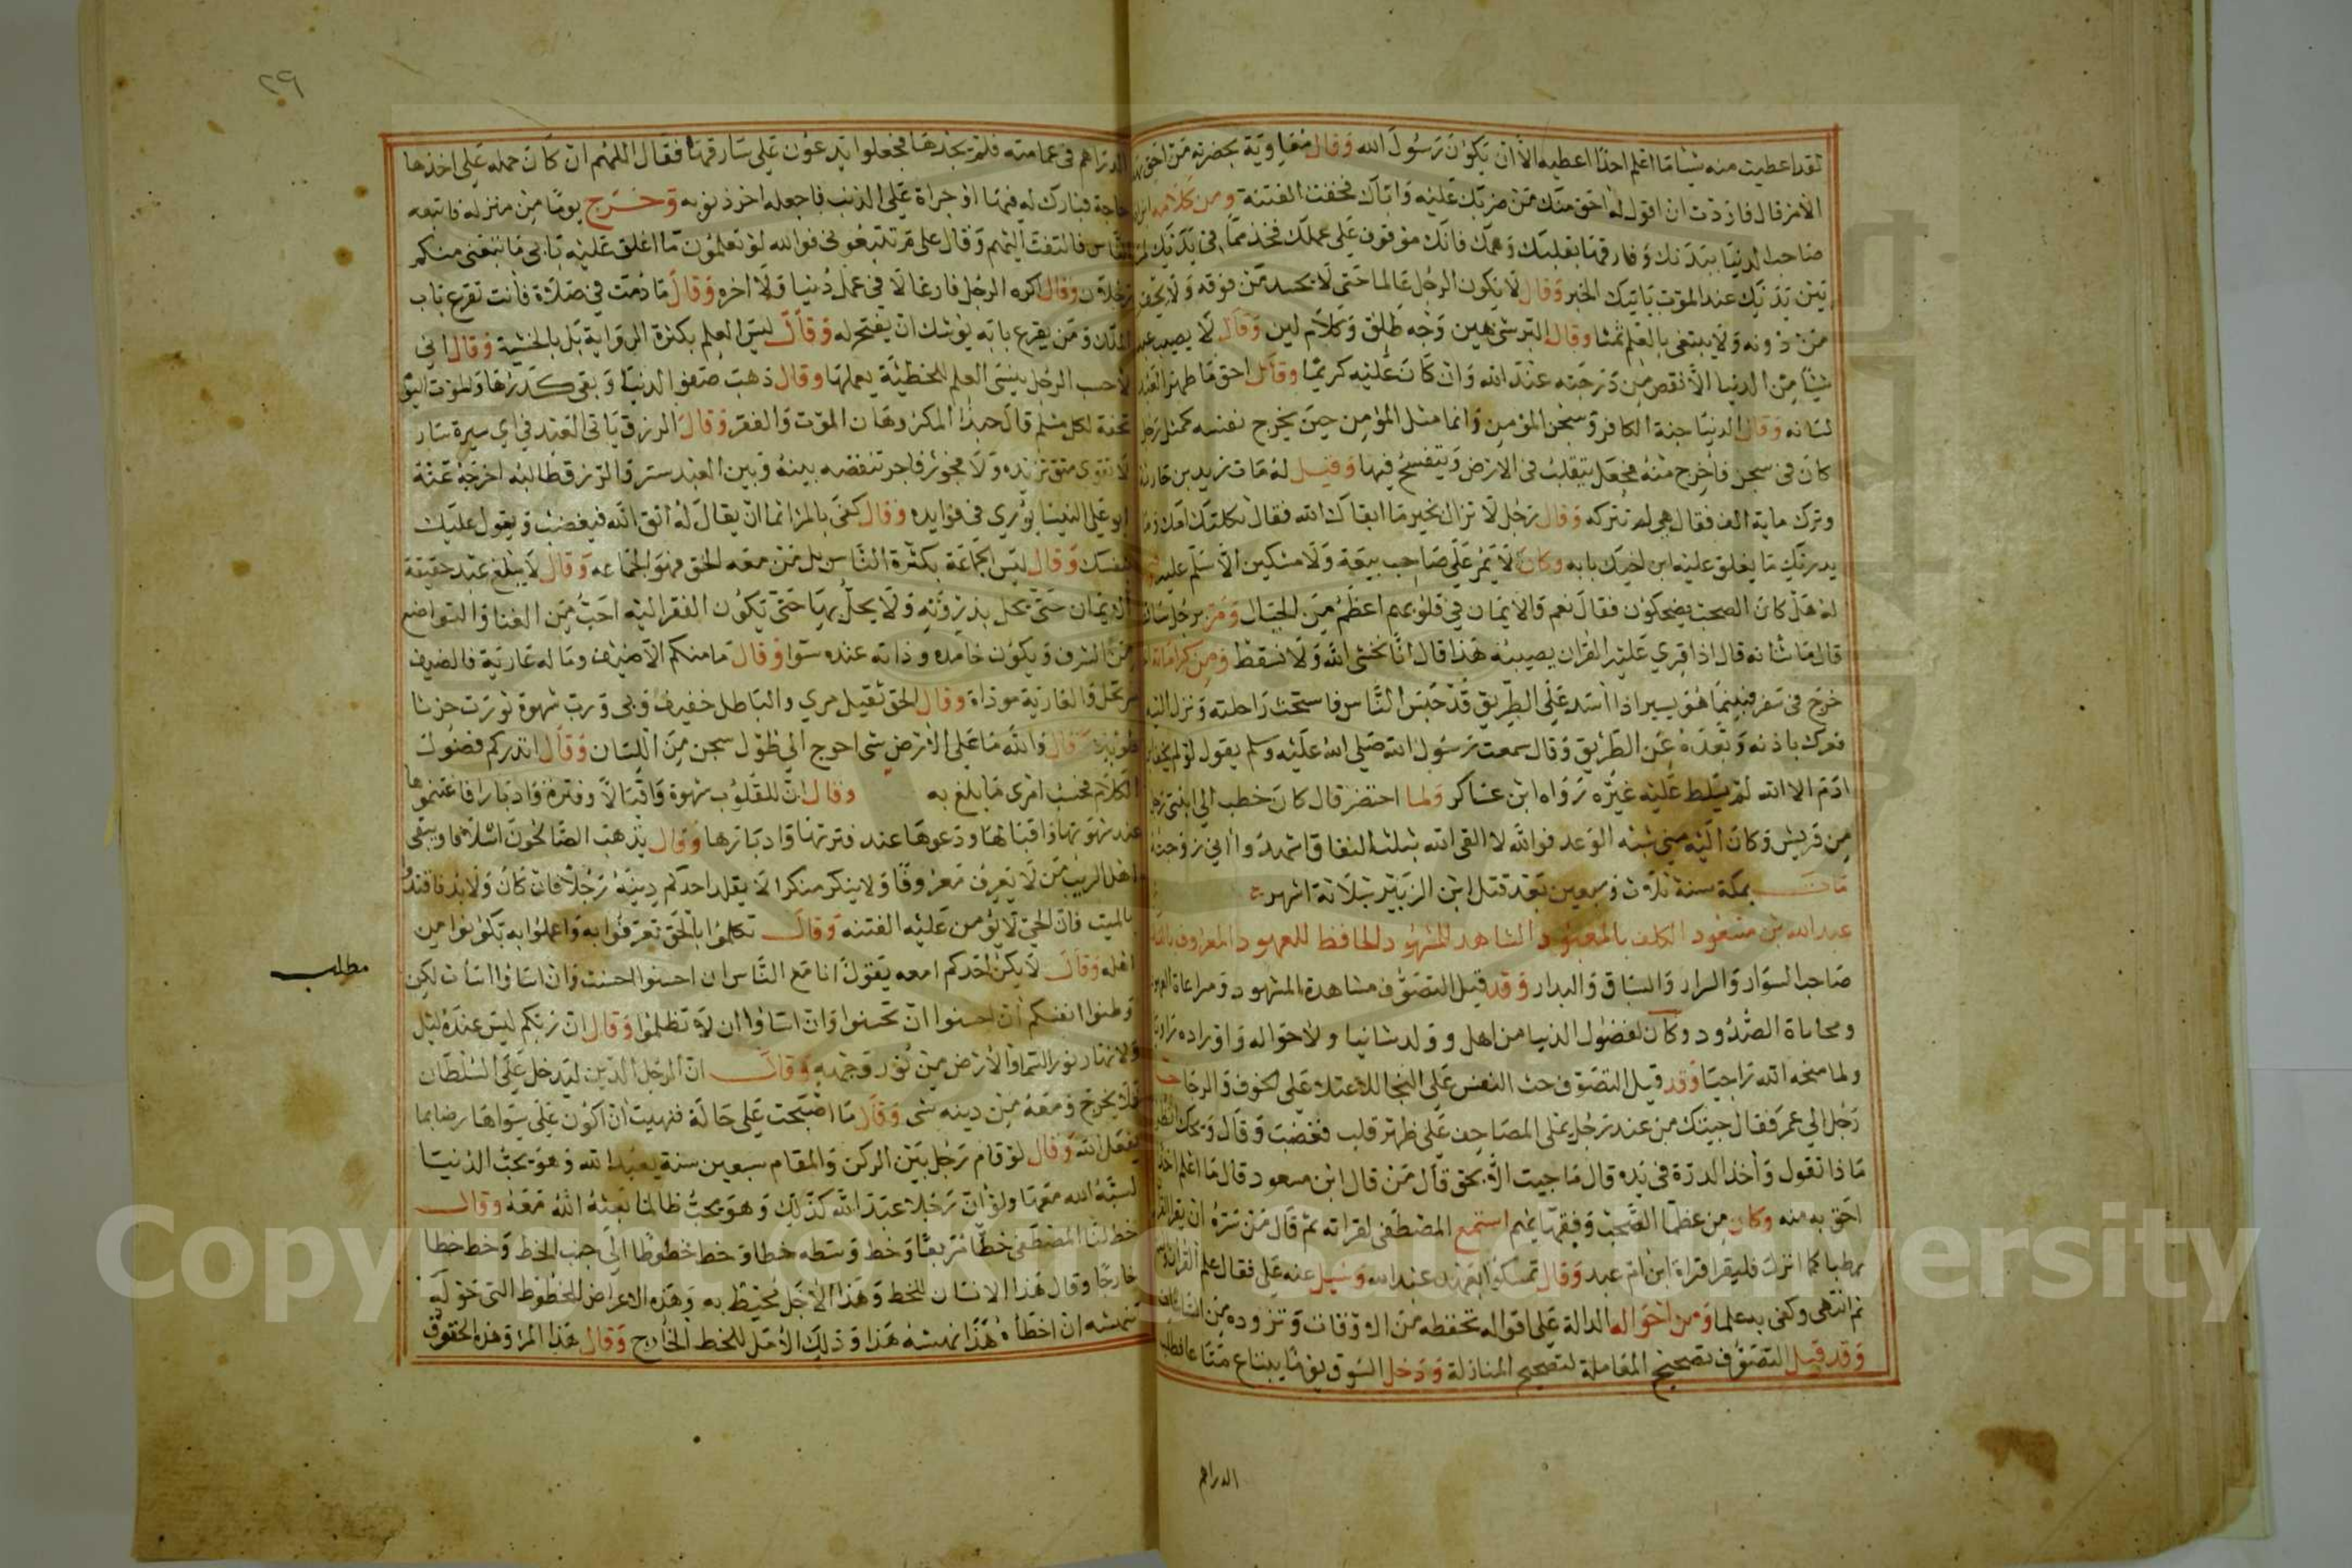 لقد اعطيت منه شيئا ما اعلم احدا اعطيه الا ان يكون رسول الله وقال معاوية بحضرته من احق بهذا
الامر قال فاردت ان اقول له احق منك من ضربك عليه واباك فخفت الفتنة ومن كلامه ابن ادم
صاحب الدنيا ببدنك وفارقها بقلبك وهمك فانك موقوف على عملك فخذ مما في يديك لما
بين يديك عند الموت ياتيك الخبر وقال لا يكون الرجل عالما حتى لا يحسد من فوقه ولا يحقر
من دونه ولا يبتغي بالعلم ثمنا وقال البر شي هين وجه طلق وكلام لين وقال لا يصيب عبد
شيئا من الدنيا الا نقص من درجته عند الله وان كان عليه كريما وقال احق ما طهر العبد
لسانه وقال الدنيا جنة الكافر وسجن المؤمن وانما مثل المؤمن حين يخرج نفسه كمثل رجل
كان في سجن فاخرج منه فجعل يتقلب في الارض ويتفسح فيها وقيل له مات زيد بن حارثة
وترك ماية الف فقال هي لم تتركه وقال رجل لا تزال بخير ما ابقاك الله فقال ثكلتك امك وما
يدريك ما يغلق عليه ابن اخيك بابه وكان لا يمر على صاحب بيعة ولا مسكين الا سلم عليه
له هل كان الصحب يضحكون فقال نعم والايمان في قلوبهم اعظم من الجبال ومر برجل ساقط
قال ما شانه قال اذا قري عليه القران يصيبه هذا قال انا نخشى الله ولا نسقط ومن كراماته انه
خرج في سفر فبينما هو يسير اذا اسد على الطريق قد حبس الناس فاستحث راحلته ونزل اليه
فعرك باذنه وبعده عن الطريق وقال سمعت رسول الله صلى الله عليه وسلم يقول لو لم يخف ابن
ادم الا الله لم يسلط عليه غيره رواه ابن عساكر ولما احتضر قال كان خطب الي ابنتي رجل
من قريش وكان اليه مني شبه الوعد فوالله لا القى الله بثلث النفاق اشهدوا اني زوجته
مات بمكة سنة ثلاث وسبعين بعد قتل ابن الزبير بثلاثة اشهر
عبد الله بن مسعود الكلف بالمعبود الشاهد للمشهود الحافظ للعهود المعروف
صاحب السواد والسرار والسباق والبدار وقد قيل التصوف مشاهدة المشهود ومراعاة العهود
ومحاماة الصدود وكان لفضول الدنيا من اهل وولد شانيا ولاحواله واوراده
ولما منحه الله راجيا وقد قيل التصوف حث النفس على النجا للاعتلا على الخوف والرجا
رجل الى عمر فقال جيتك من عند رجل يملي المصاحف على ظهر قلب فغضب وقال ويحك انظر
ماذا تقول واخذ الدرة في يده قال ما جيت الا بحق قال من قال ابن مسعود قال ما اعلم احدا
احق به منه وكان من عظما الصحب وفقهايهم استمع المصطفى لقراته ثم قال من سره ان يقرا القران
رطبا كما انزل فليقرا قراة ابن ام عبد وقال تمسكوا بعهد عبد الله وسيل عنه علي فقال علم القران والسنة
ثم انتهى وكفى به علما ومن احواله الدالة على اقواله تحفظه من الاوقات وتزوده من الساعات
وقد قيل التصوف تصحيح المعاملة لتصحيح المنازلة ودخل السوق يوما يبتاع متاعا فطلب
الدراهم
٢٩
الدراهم في عمامته فلم يجدها فجعلوا يدعون على سارقها فقال اللهم ان كان حمله على اخذها
حاجة فبارك له فيها او جراة على الذنب فاجعله اخر ذنوبه وخرج يوما من منزله فاتبعه
الناس فالتفت اليهم وقال علام تتبعوني فوالله لو تعلمون ما اغلق عليه بابي ما تبعني منكم
رجلان وقال اكره الرجل فارغا لا في عمل دنيا ولا اخره وقال ما دمت في صلاة فانت تقرع باب
الملك ومن يقرع بابه يوشك ان يفتح له وقال ليس العلم بكثرة الرواية بل بالخشية وقال اني
لاحسب الرجل ينسى العلم للخطيئة يعملها وقال ذهب صفو الدنيا وبقي كدرها والموت اليوم
تحفة لكل مسلم قال حبذا المكروهان الموت والفقر وقال الرزق ياتي العبد في اي سيرة سار
لا تقوى متق تزيده ولا فجور فاجر تنقصه بينه وبين العبد ستر والرزق طالبه اخرجه عنه
ابو علي النيسابوري في فوايده وقال كفى بالمرء اثما ان يقال له اتق الله فيغضب ويقول عليك
بنفسك وقال ليس الجماعة بكثرة الناس بل من معه الحق فهو الجماعه وقال لا يبلغ عبد حقيقة
الايمان حتى يحل بذروته ولا يحل بها حتى يكون الفقر اليه احب من الغنا والتواضع
من الشرف ويكون حامده وذامه عنده سوا وقال ما منكم الا ضيف وماله عارية فالضيف
مرتحل والعارية موداة وقال الحق ثقيل مري والباطل خفيف وبي ورب شهوة تورث حزنا
طويلا وقال والله ما على الارض شي احوج الى طول سجن من اللسان وقال انذركم فضول
الكلام بحسب امرى ما بلغ به وقال ان للقلوب شهوة واقبالا وفترة وادبارا فاغتنموها
عند شهوتها واقبالها ودعوها عند فترتها وادبارها وقال يذهب الصالحون اسلافا ويبقى
اهل الريب من لا يعرف معروفا ولا ينكر منكرا الا يقلد احدكم دينه رجلا فان كان ولا بد فاقتدوا
بالميت فان الحي لا يؤمن عليه الفتنه وقال تكلموا بالحق تعرفوا به واعملوا به تكونوا من
مطلب
اهله وقال لا يكن احدكم امعه يقول انا مع الناس ان احسنوا احسنت وان اساؤا اسات لكن
وطنوا انفسكم ان احسنوا ان تحسنوا وان اساؤا ان لا تظلموا وقال ان ربكم ليس عنده ليل
ولا نهار نور السموات والارض من نور وجهه وقال ان الرجل الدين ليدخل على السلطان
فلا يخرج ومعه من دينه شي وقال ما اصبحت على حالة فتمنيت ان اكون على سواها رضا بما
يفعل الله وقال لو قام رجل بين الركن والمقام سبعين سنة يعبد الله وهو يحب الدنيا
لبعثه الله معها ولو ان رجلا عبد الله كذلك وهو يحب ظالما بعثه الله معه وقال
خط لنا المصطفى خطا مربعا وخط وسطه خطا وخط خطوطا الى جنب الخط وخط خطا
خارجا وقال هذا الانسان للخط وهذا الاجل محيط به وهذه الاعراض للخطوط التي حوله
تنهشه ان اخطاه هذا نهشه هذا وذلك الامل للخط الخارج وقال هذا المرا وهذه الحتوف